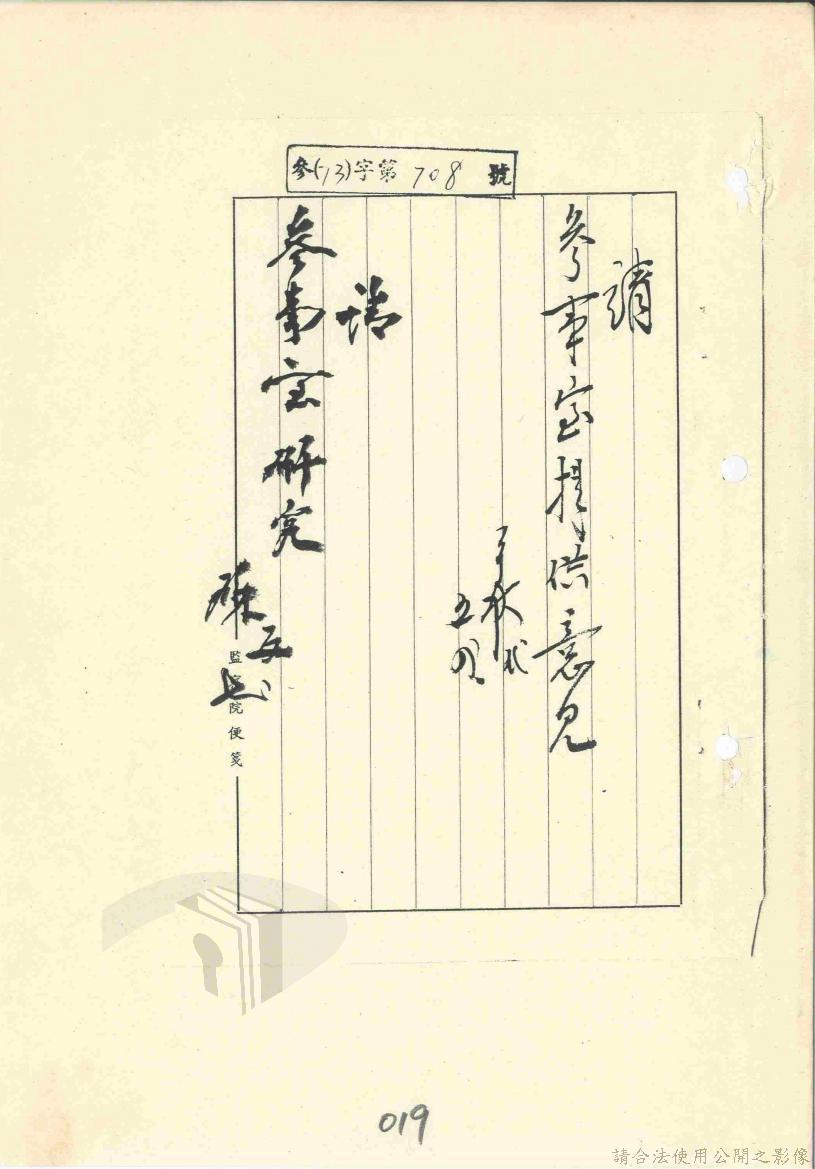 參(73)字第708號
請
參事室提供意見
五
請
參事室研究
監察院便箋
019
請合法使用公開之影像